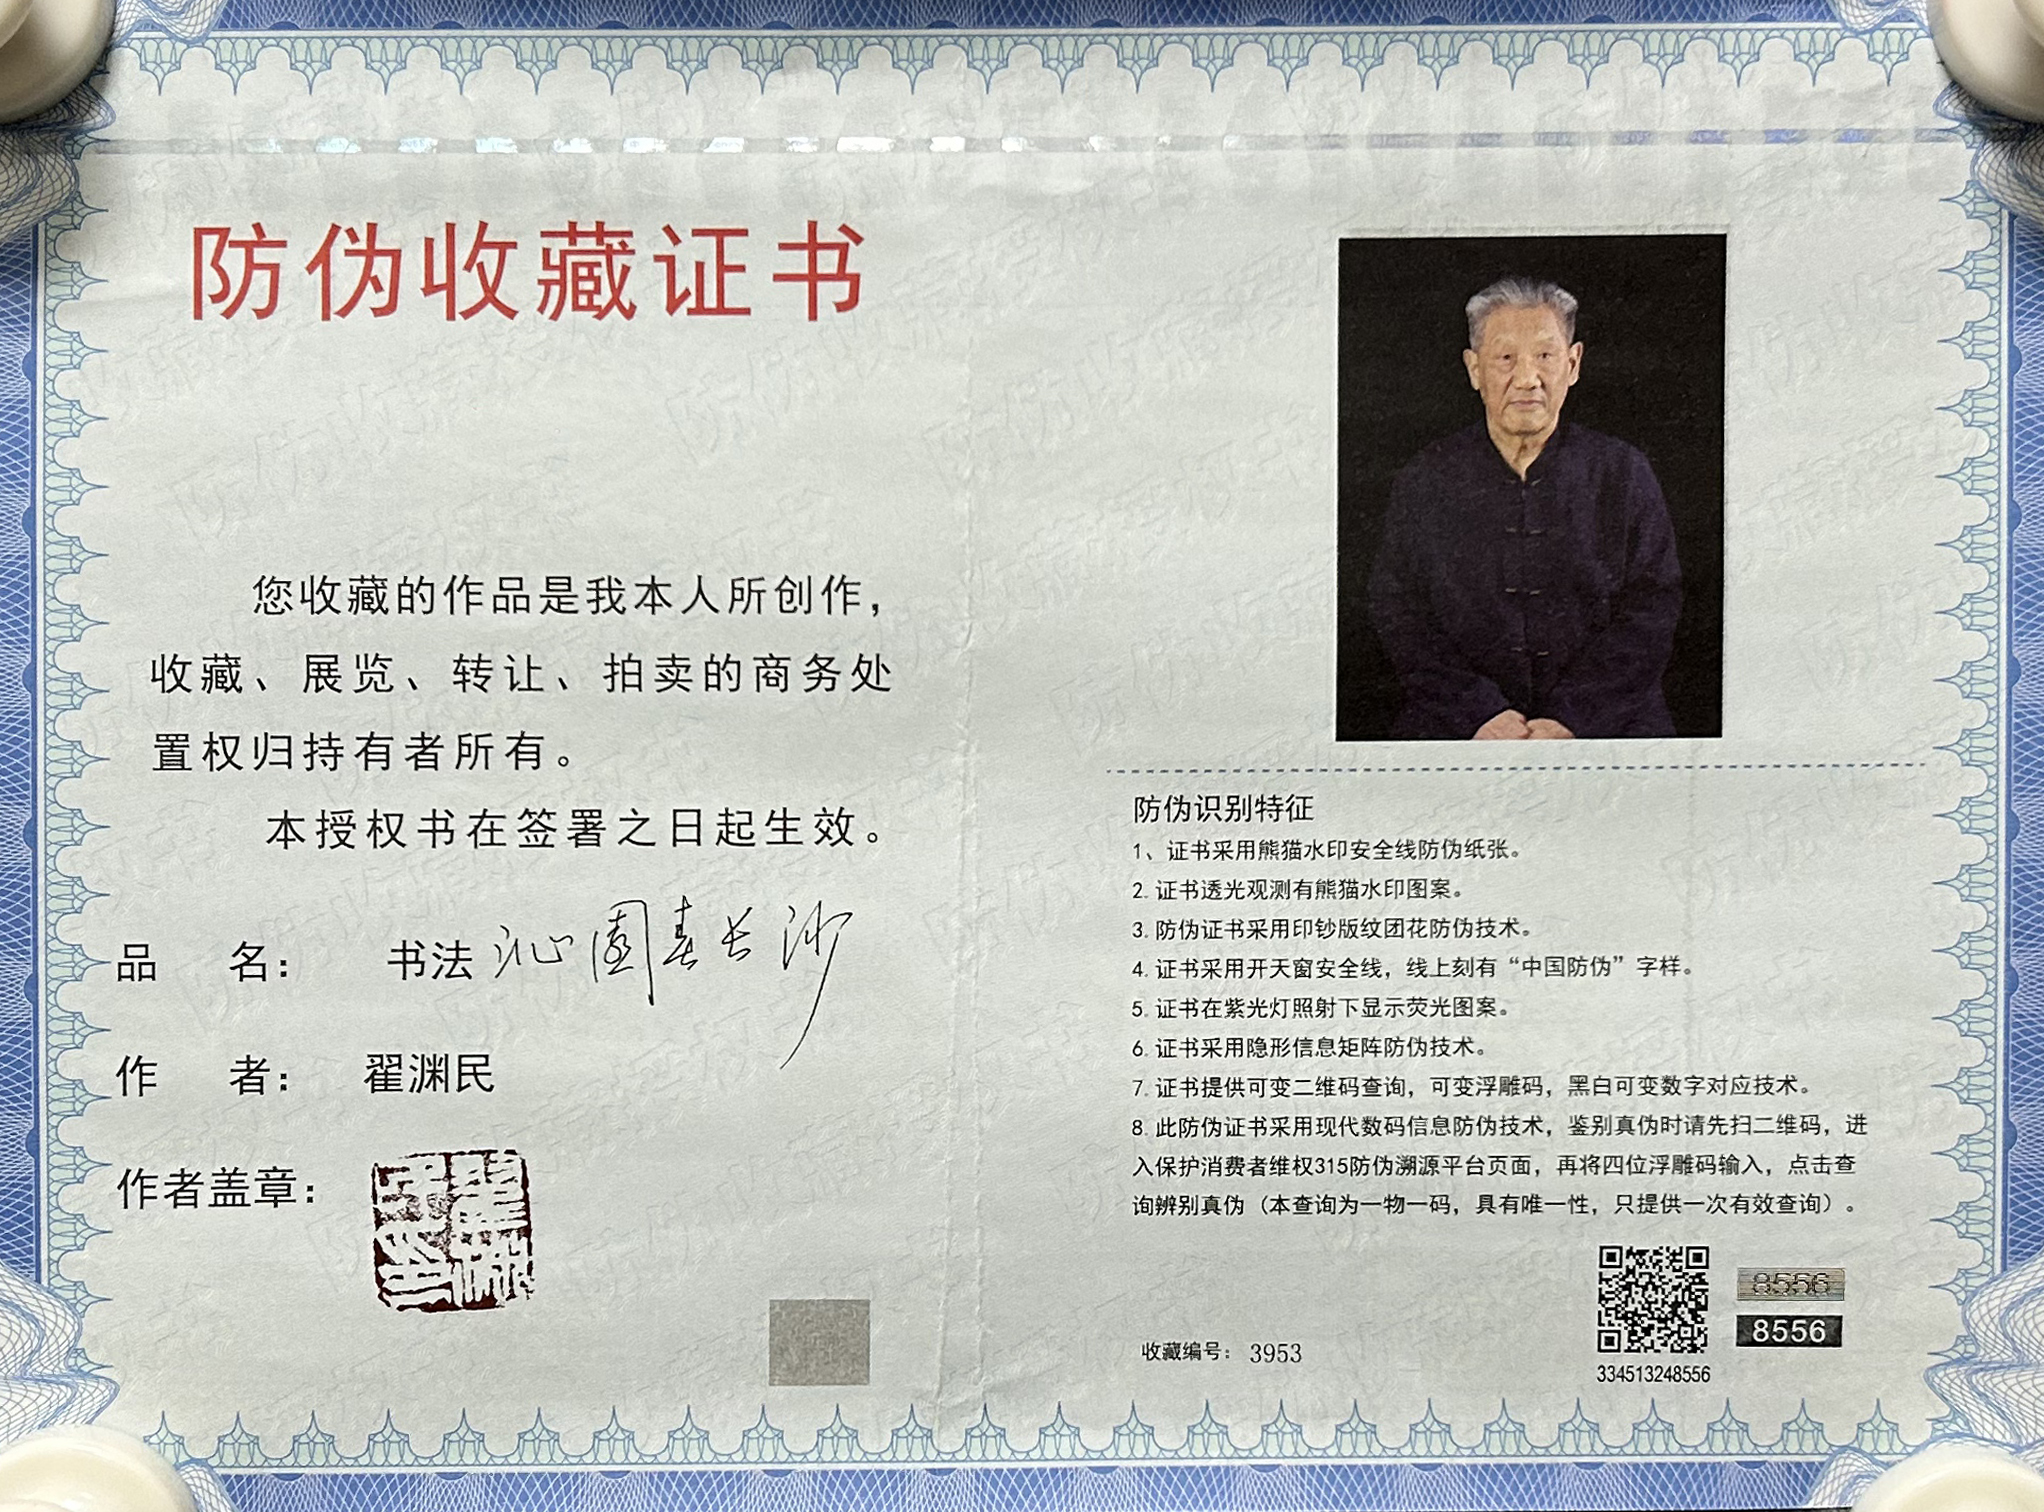 防伪收藏证书
您收藏的作品是我本人所创作，
收藏、展览、转让、拍卖的商务处
置权归持有者所有。
本授权书在签署之日起生效。
品 名： 书法 沁園春长沙
作 者： 翟渊民
作者盖章：
防伪识别特征
1、证书采用熊猫水印安全线防伪纸张。
2. 证书透光观测有熊猫水印图案。
3. 防伪证书采用印钞版纹团花防伪技术。
4. 证书采用开天窗安全线，线上刻有“中国防伪”字样。
5. 证书在紫光灯照射下显示荧光图案。
6. 证书采用隐形信息矩阵防伪技术。
7. 证书提供可变二维码查询，可变浮雕码，黑白可变数字对应技术。
8. 此防伪证书采用现代数码信息防伪技术，鉴别真伪时请先扫二维码，进
入保护消费者维权315防伪溯源平台页面，再将四位浮雕码输入，点击查
询辨别真伪（本查询为一物一码，具有唯一性，只提供一次有效查询）。
收藏编号： 3953
8556
8556
334513248556